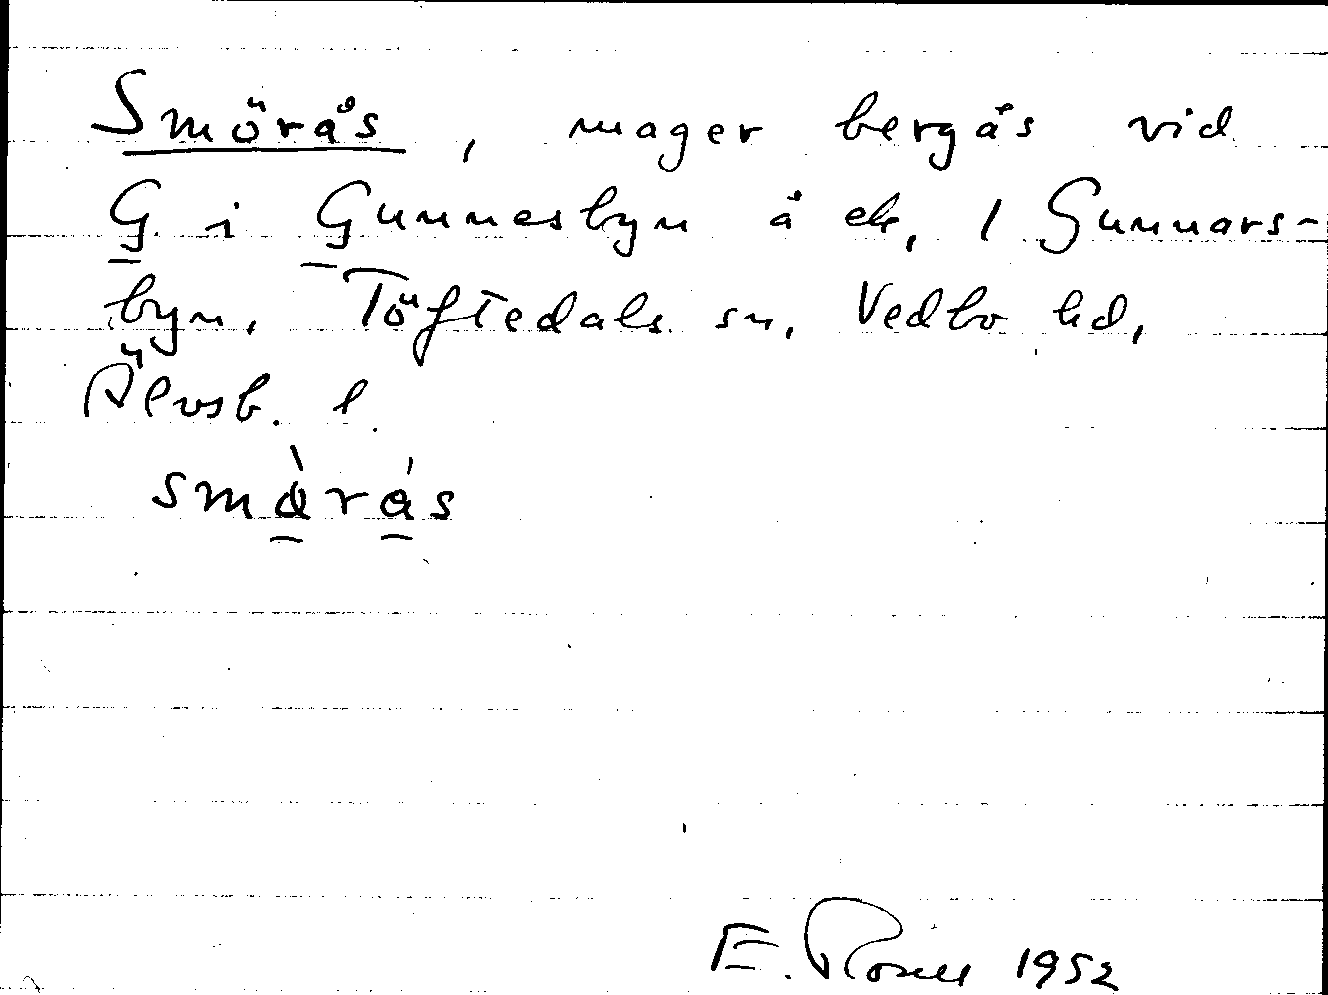 Smörås, mager bergås vid
G i Gunnesbyn å ek, 1 Gunnars-
byn, Töftedals sn, Vedbo hd,
Älvsb. l.
E. Rosell 1952